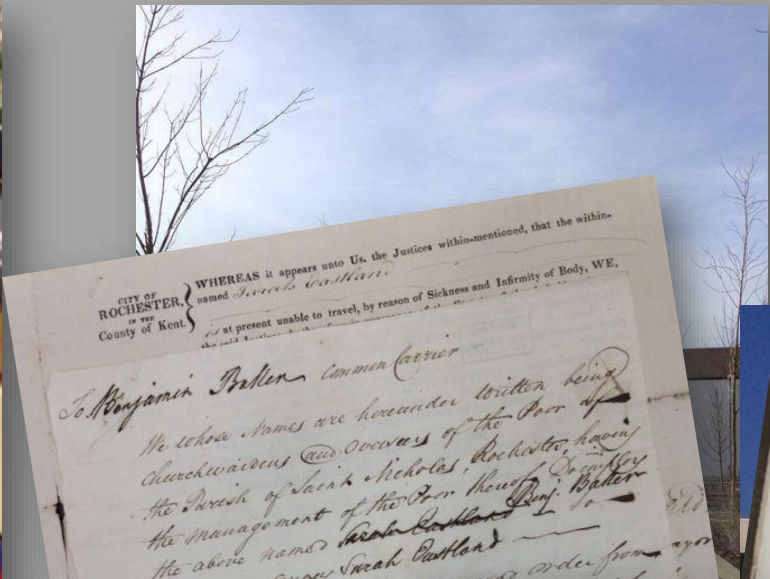 CITY OF
ROCHESTER,
IN THE
County of Kent.
WHEREAS it appears unto Us, the Justices within-mentioned, that the within-
named Eastland
is at present unable to travel, by reason of Sickness and Infirmity of Body, WE,
To Benjamin common Carrier
We whose Names are hereunder written being
Churchwardens and Overseers of the Poor of
the Parish of Saint Nicholas, Rochester, having
the management of the Poor thereof Do
the above named Sarah Eastland Benj. to
Sarah Eastland
order from